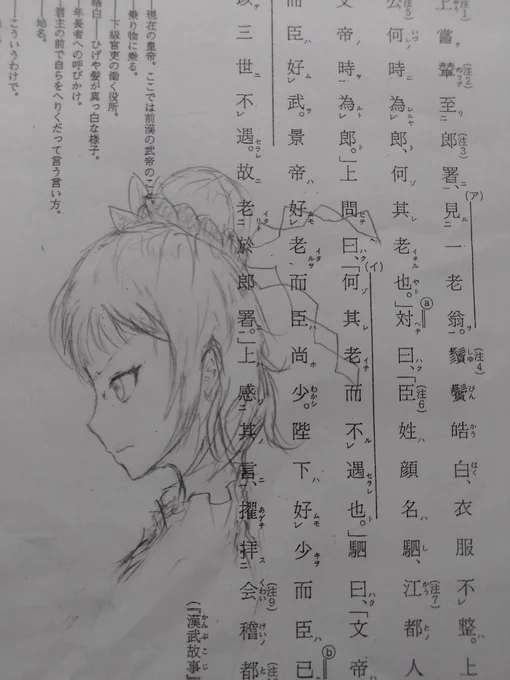 上嘗輦至郎署、見一老翁。鬚鬢皓白、衣服不レ整。上
公何時為郎、何其老也。」対曰、「臣姓顔名駟、江都人
文帝時為郎。」上問曰、「何其老而不レ遇也。」駟曰、「文帝
而臣好レ武。景帝好レ老而臣尚少。陛下好レ少而臣已
以三世不レ遇。故老於郎署。」上感其言、擢拝会稽都
(『漢武故事』
——現在の皇帝。ここでは前漢の武帝のこ
——乗り物に乗る。
——下級官吏の働く役所。
皓白——ひげや髪が真っ白な様子。
——年長者への呼びかけ。
——君主の前で自らをへりくだって言う言い方。
——地名。
——こういうわけで。